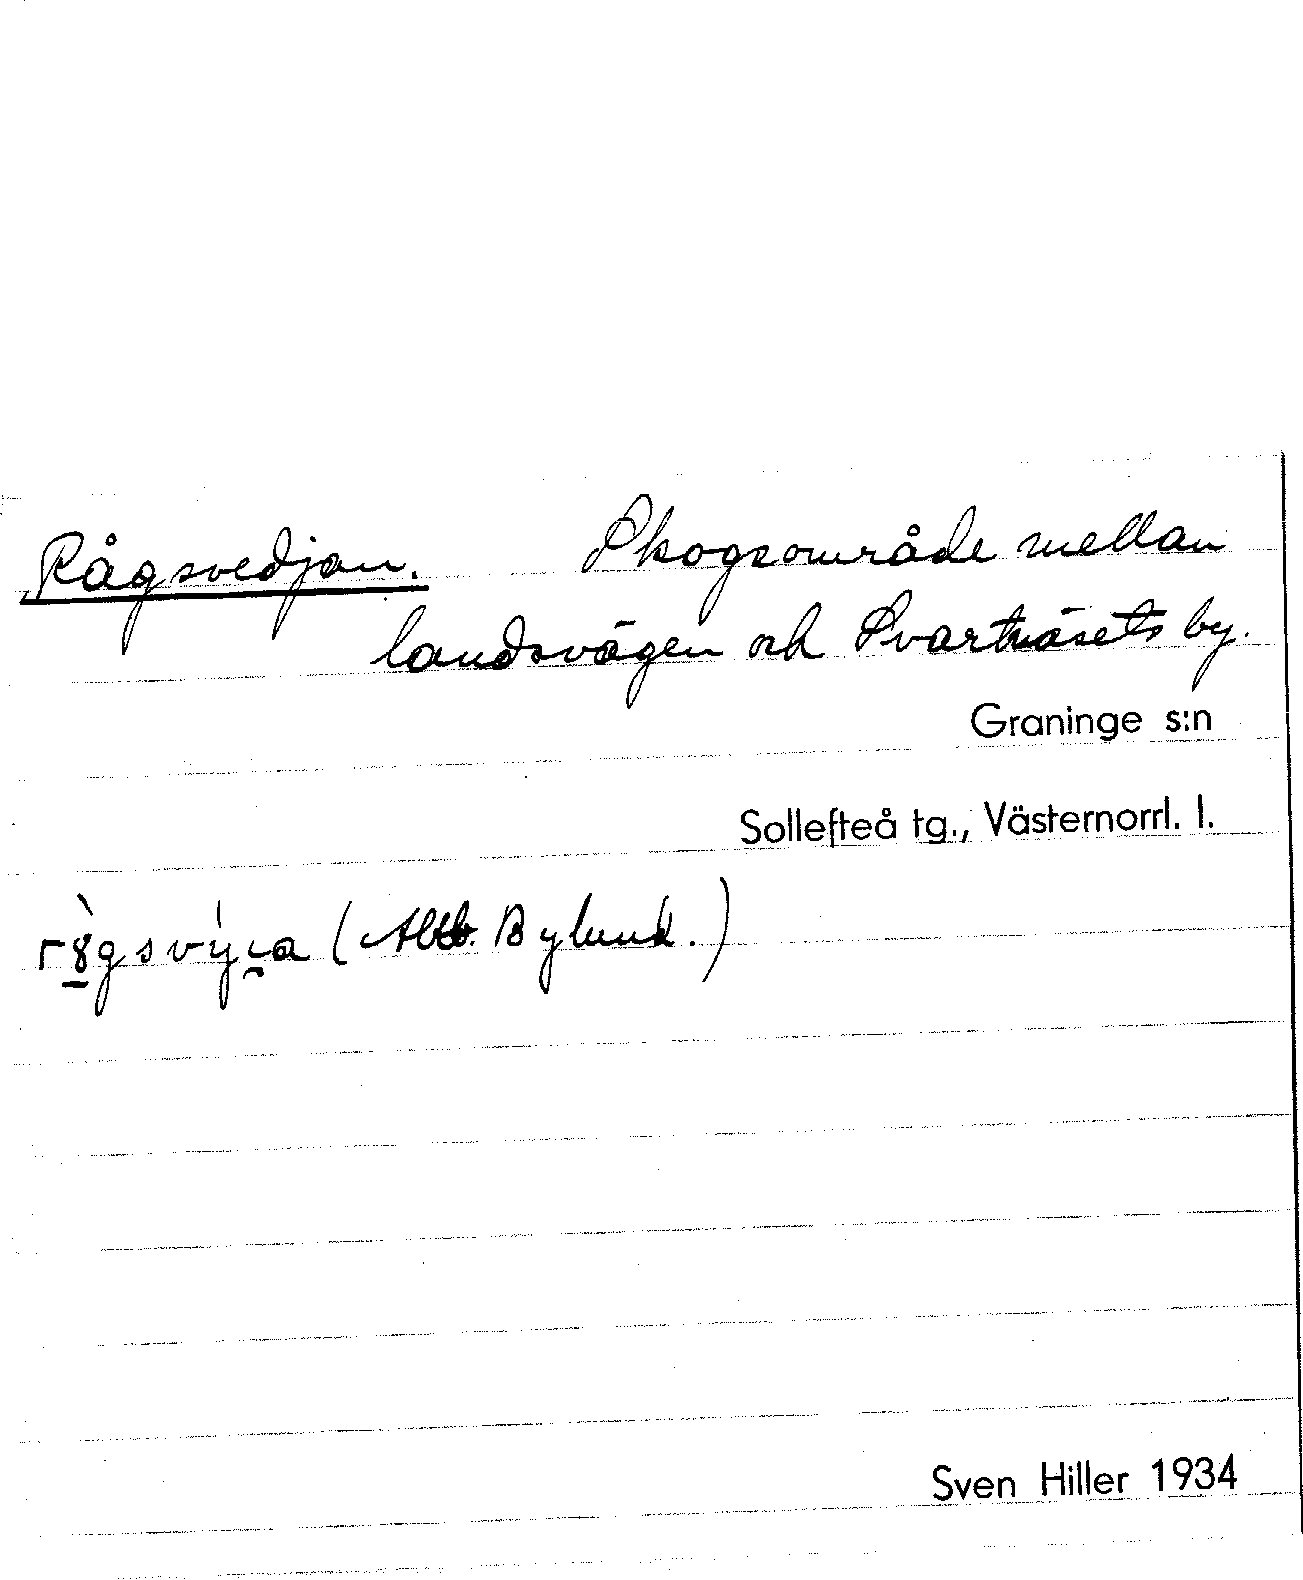 Rågsvedjan. Skogsområde mellan
landsvägen och Svartnäsets by.
Graninge s:n
Sollefteå tg., Västernorrl. l.
(Bylund.)
Sven Hiller 1934